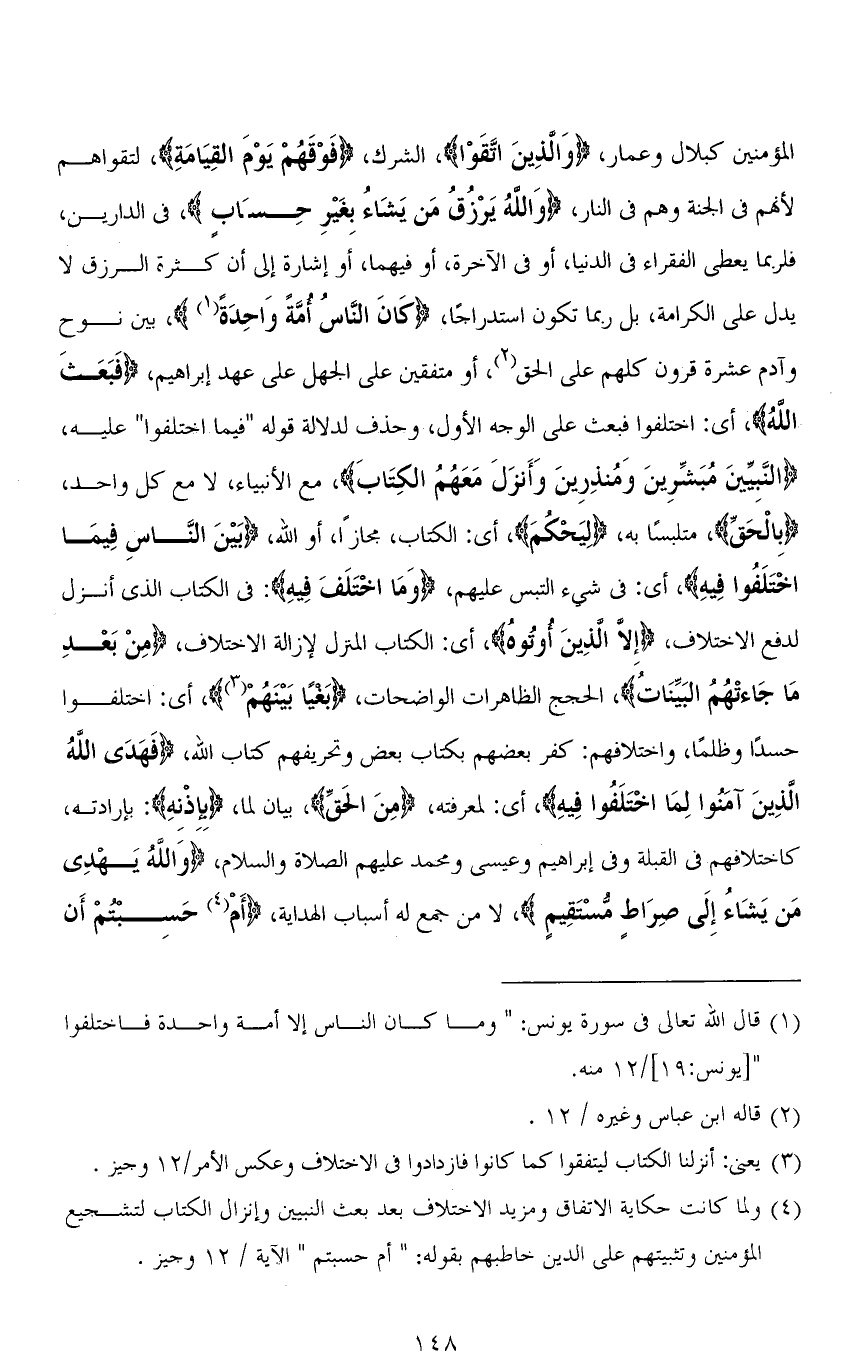 المؤمنين كبلال وعمار، ﴿وَالَّذِينَ اتَّقَوْا﴾، الشرك، ﴿فَوْقَهُمْ يَوْمَ القِيَامَةِ﴾، لتقواهم
لأنهم فى الجنة وهم فى النار، ﴿وَاللَّهُ يَرْزُقُ مَن يَشَاءُ بِغَيْرِ حِسَابٍ ﴾، فى الدارين،
فلربما يعطى الفقراء فى الدنيا، أو فى الآخرة، أو فيهما، أو إشارة إلى أن كثرة الرزق لا
يدل على الكرامة، بل ربما تكون استدراجًا، ﴿كَانَ النَّاسُ أُمَّةً وَاحِدَةً(١) ﴾، بين نوح
وآدم عشرة قرون كلهم على الحق(٢)، أو متفقين على الجهل على عهد إبراهيم، ﴿فَبَعَثَ
اللَّهُ﴾، أى: اختلفوا فبعث على الوجه الأول، وحذف لدلالة قوله "فيما اختلفوا" عليه،
﴿النَّبِيِّينَ مُبَشِّرِينَ وَمُنذِرِينَ وَأَنزَلَ مَعَهُمُ الكِتَابَ﴾، مع الأنبياء، لا مع كل واحد،
﴿بِالْحَقِّ﴾، متلبسًا به، ﴿لِيَحْكُمَ﴾، أى: الكتاب، مجازًا، أو الله، ﴿بَيْنَ النَّاسِ فِيمَا
اخْتَلَفُوا فِيهِ﴾، أى: فى شيء التبس عليهم، ﴿وَمَا اخْتَلَفَ فِيهِ﴾: فى الكتاب الذى أنزل
لدفع الاختلاف، ﴿إِلاَّ الَّذِينَ أُوتُوهُ﴾، أى: الكتاب المنزل لإزالة الاختلاف، ﴿مِنْ بَعْدِ
مَا جَاءتْهُمُ البَيِّنَاتُ﴾، الحجج الظاهرات الواضحات، ﴿بَغْيًا بَيْنَهُمْ(٣)﴾، أى: اختلفوا
حسدًا وظلمًا، واختلافهم: كفر بعضهم بكتاب بعض وتحريفهم كتاب الله، ﴿فَهَدَى اللَّهُ
الَّذِينَ آمَنُوا لِمَا اخْتَلَفُوا فِيهِ﴾، أى: لمعرفته، ﴿مِنَ الحَقِّ﴾، بيان لما، ﴿بِإِذْنِهِ﴾: بإرادته،
كاختلافهم فى القبلة وفى إبراهيم وعيسى ومحمد عليهم الصلاة والسلام، ﴿وَاللَّهُ يَهْدِى
مَن يَشَاءُ إِلَى صِرَاطٍ مُّسْتَقِيمٍ ﴾، لا من جمع له أسباب الهداية، ﴿أَمْ(٤) حَسِبْتُمْ أَن
(١) قال الله تعالى فى سورة يونس: " وما كان الناس إلا أمة واحدة فاختلفوا
"[يونس:١٩]/١٢ منه.
(٢) قاله ابن عباس وغيره / ١٢ .
(٣) يعنى: أنزلنا الكتاب ليتفقوا كما كانوا فازدادوا فى الاختلاف وعكس الأمر/١٢ وجيز .
(٤) ولما كانت حكاية الاتفاق ومزيد الاختلاف بعد بعث النبيين وإنزال الكتاب لتشجيع
المؤمنين وتثبيتهم على الدين خاطبهم بقوله: " أم حسبتم " الآية / ١٢ وجيز .
١٤٨